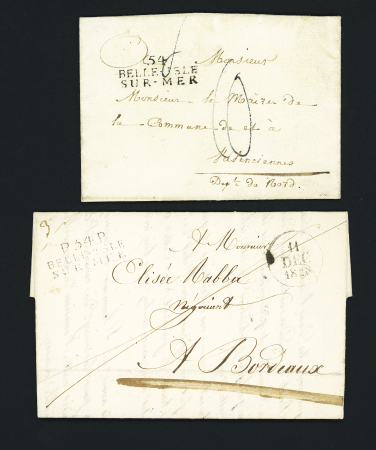 54
BELLE-ISLE
SUR-MER
Monsieur
Monsieur le Maire de
la Commune de et à
Valenciennes
Dept. du Nord.
P.54.P.
BELLE-ISLE
SUR-MER
11
DEC
1828
A Monsieur
Elisée Rabba
négociant
A Bordeaux